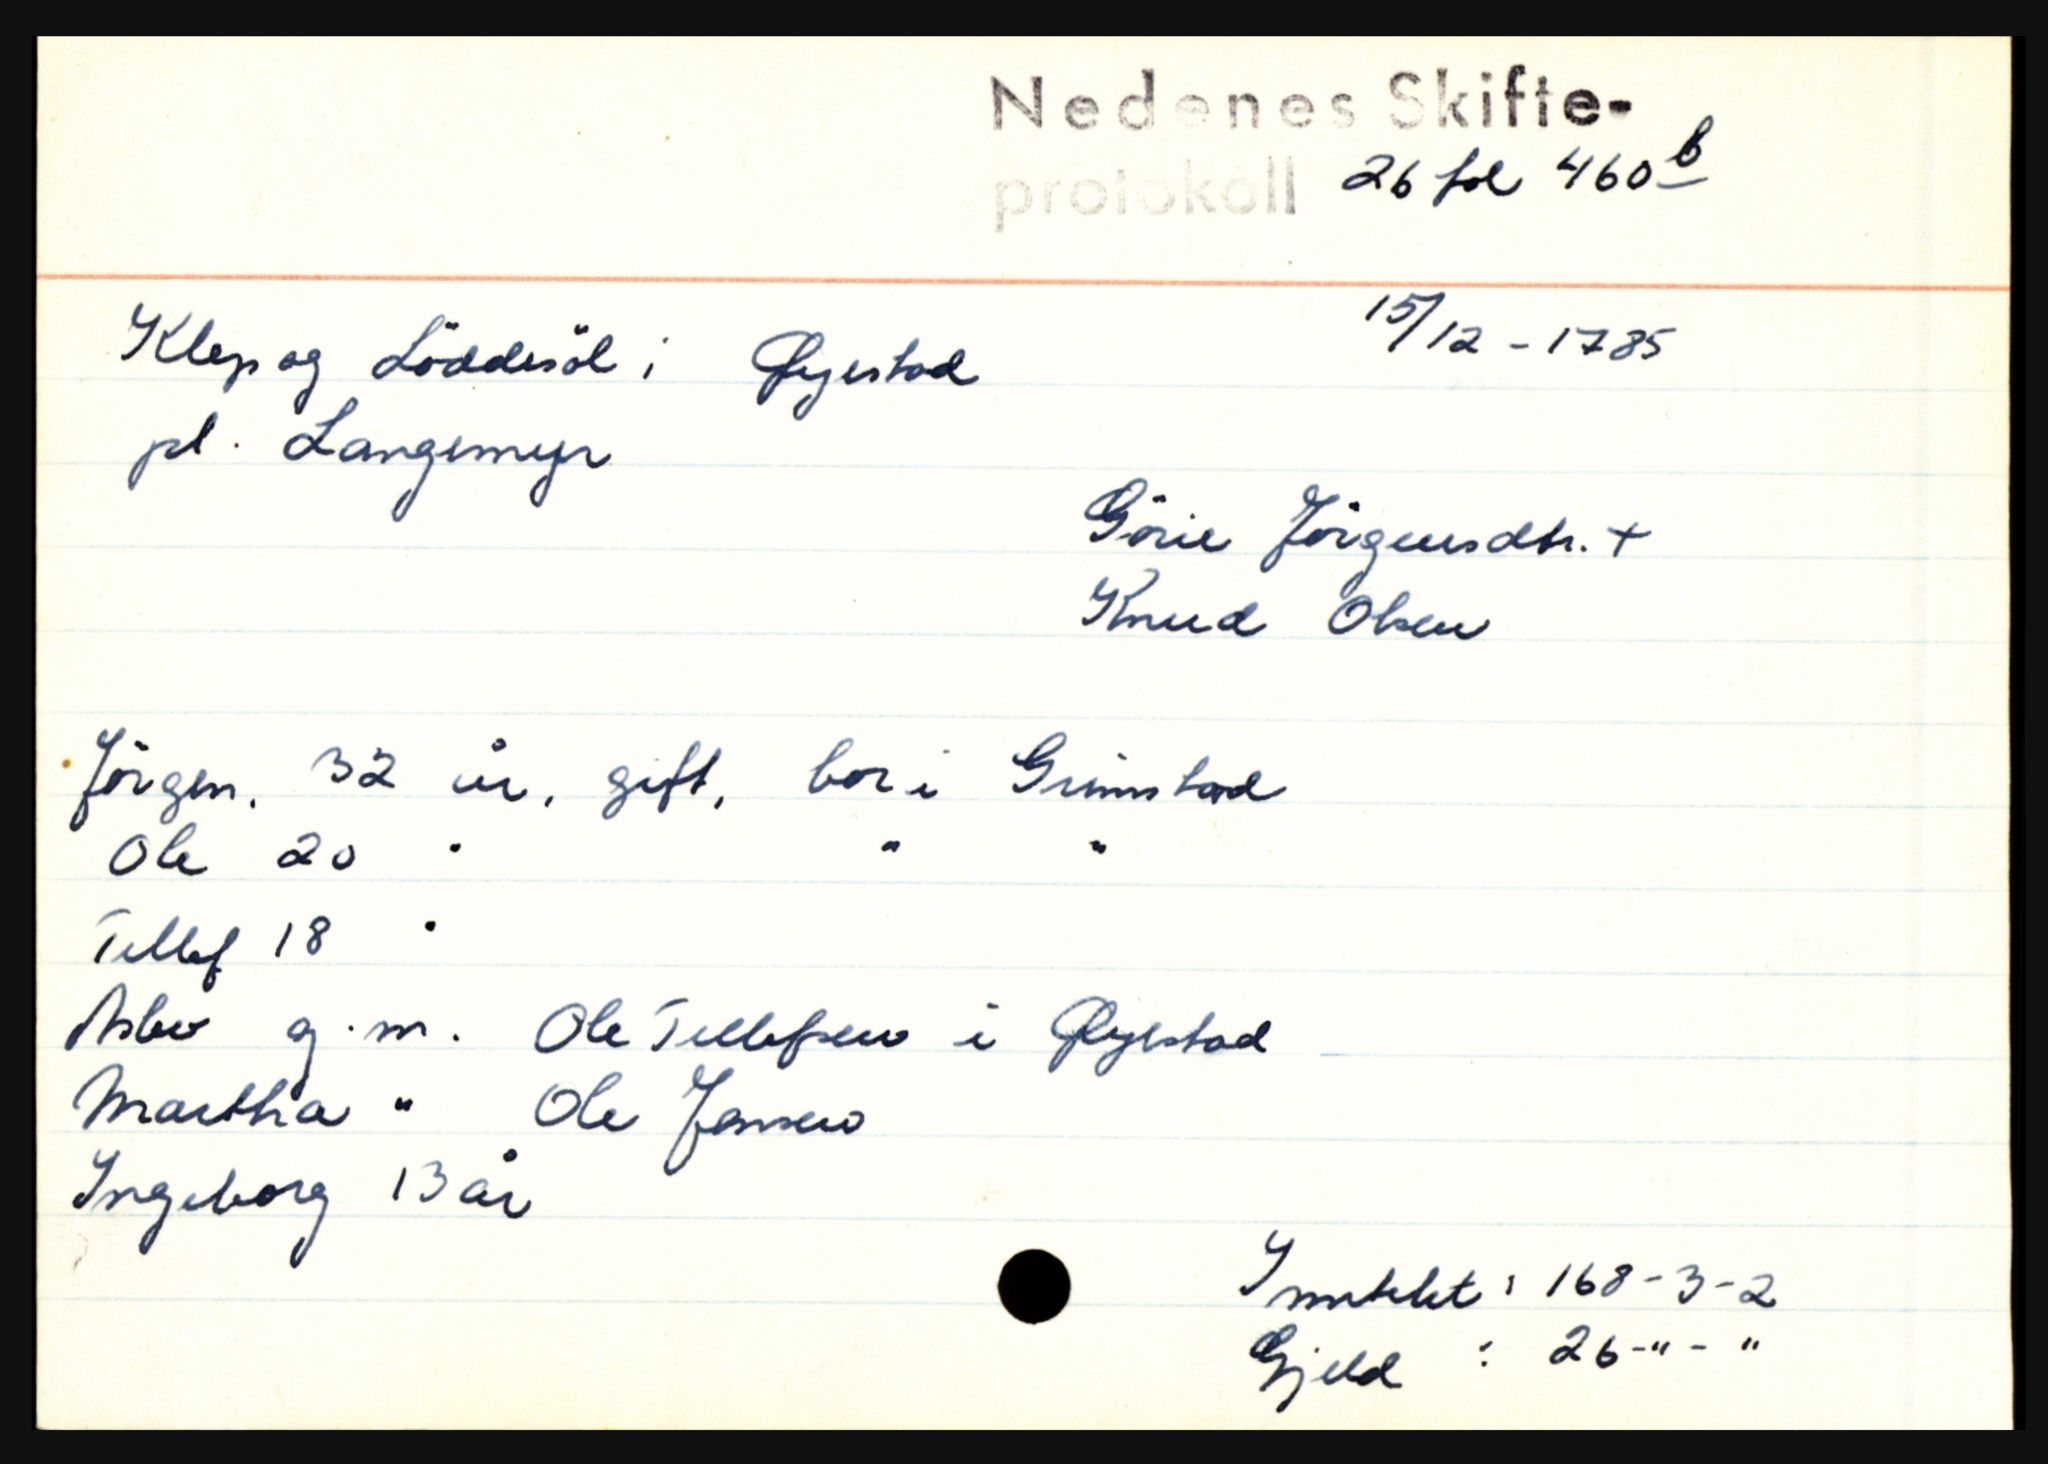 Nedenes Skifte-
protokoll 26 fol 460 b
15/12 - 1785
Klep og Löddesöl i Øyestad
pl. Langemyr
Görie Jörgensdtr. +
Knud Olsen
Jörgen, 32 år, gift, bor i Grimstad
Ole 20 " " "
Tellef 18 "
Aslev g.m. Ole Tellefsen i Øyestad
Martha " Ole Jensen
Ingeborg 13 år
Inntekt: 168-3-2
Gjeld : 26-"-"